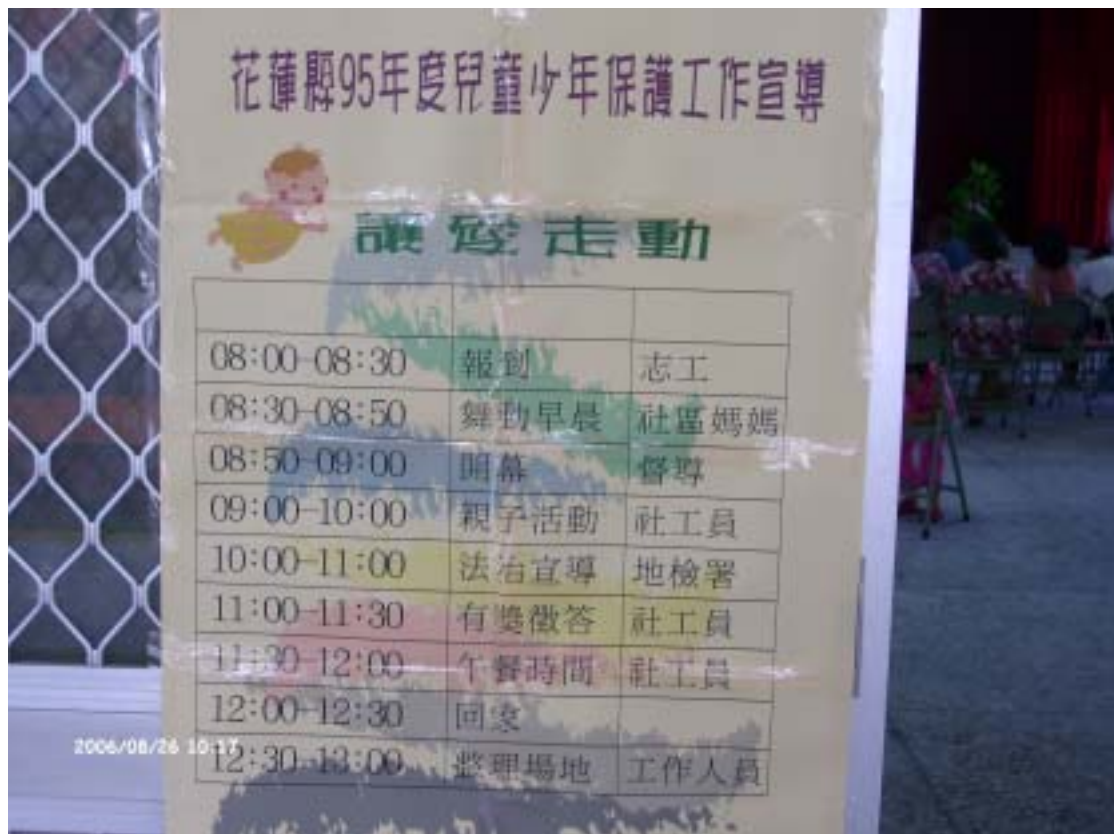 花蓮縣95年度兒童少年保護工作宣導
讓愛走動
08:00-08:30 報到 志工
08:30-08:50 舞動早晨 社區媽媽
08:50-09:00 開幕 督導
09:00-10:00 親子活動 社工員
10:00-11:00 法治宣導 地檢署
11:00-11:30 有獎徵答 社工員
11:30-12:00 午餐時間 社工員
12:00-12:30 回家
12:30-13:00 整理場地 工作人員
2006/08/26 10:17